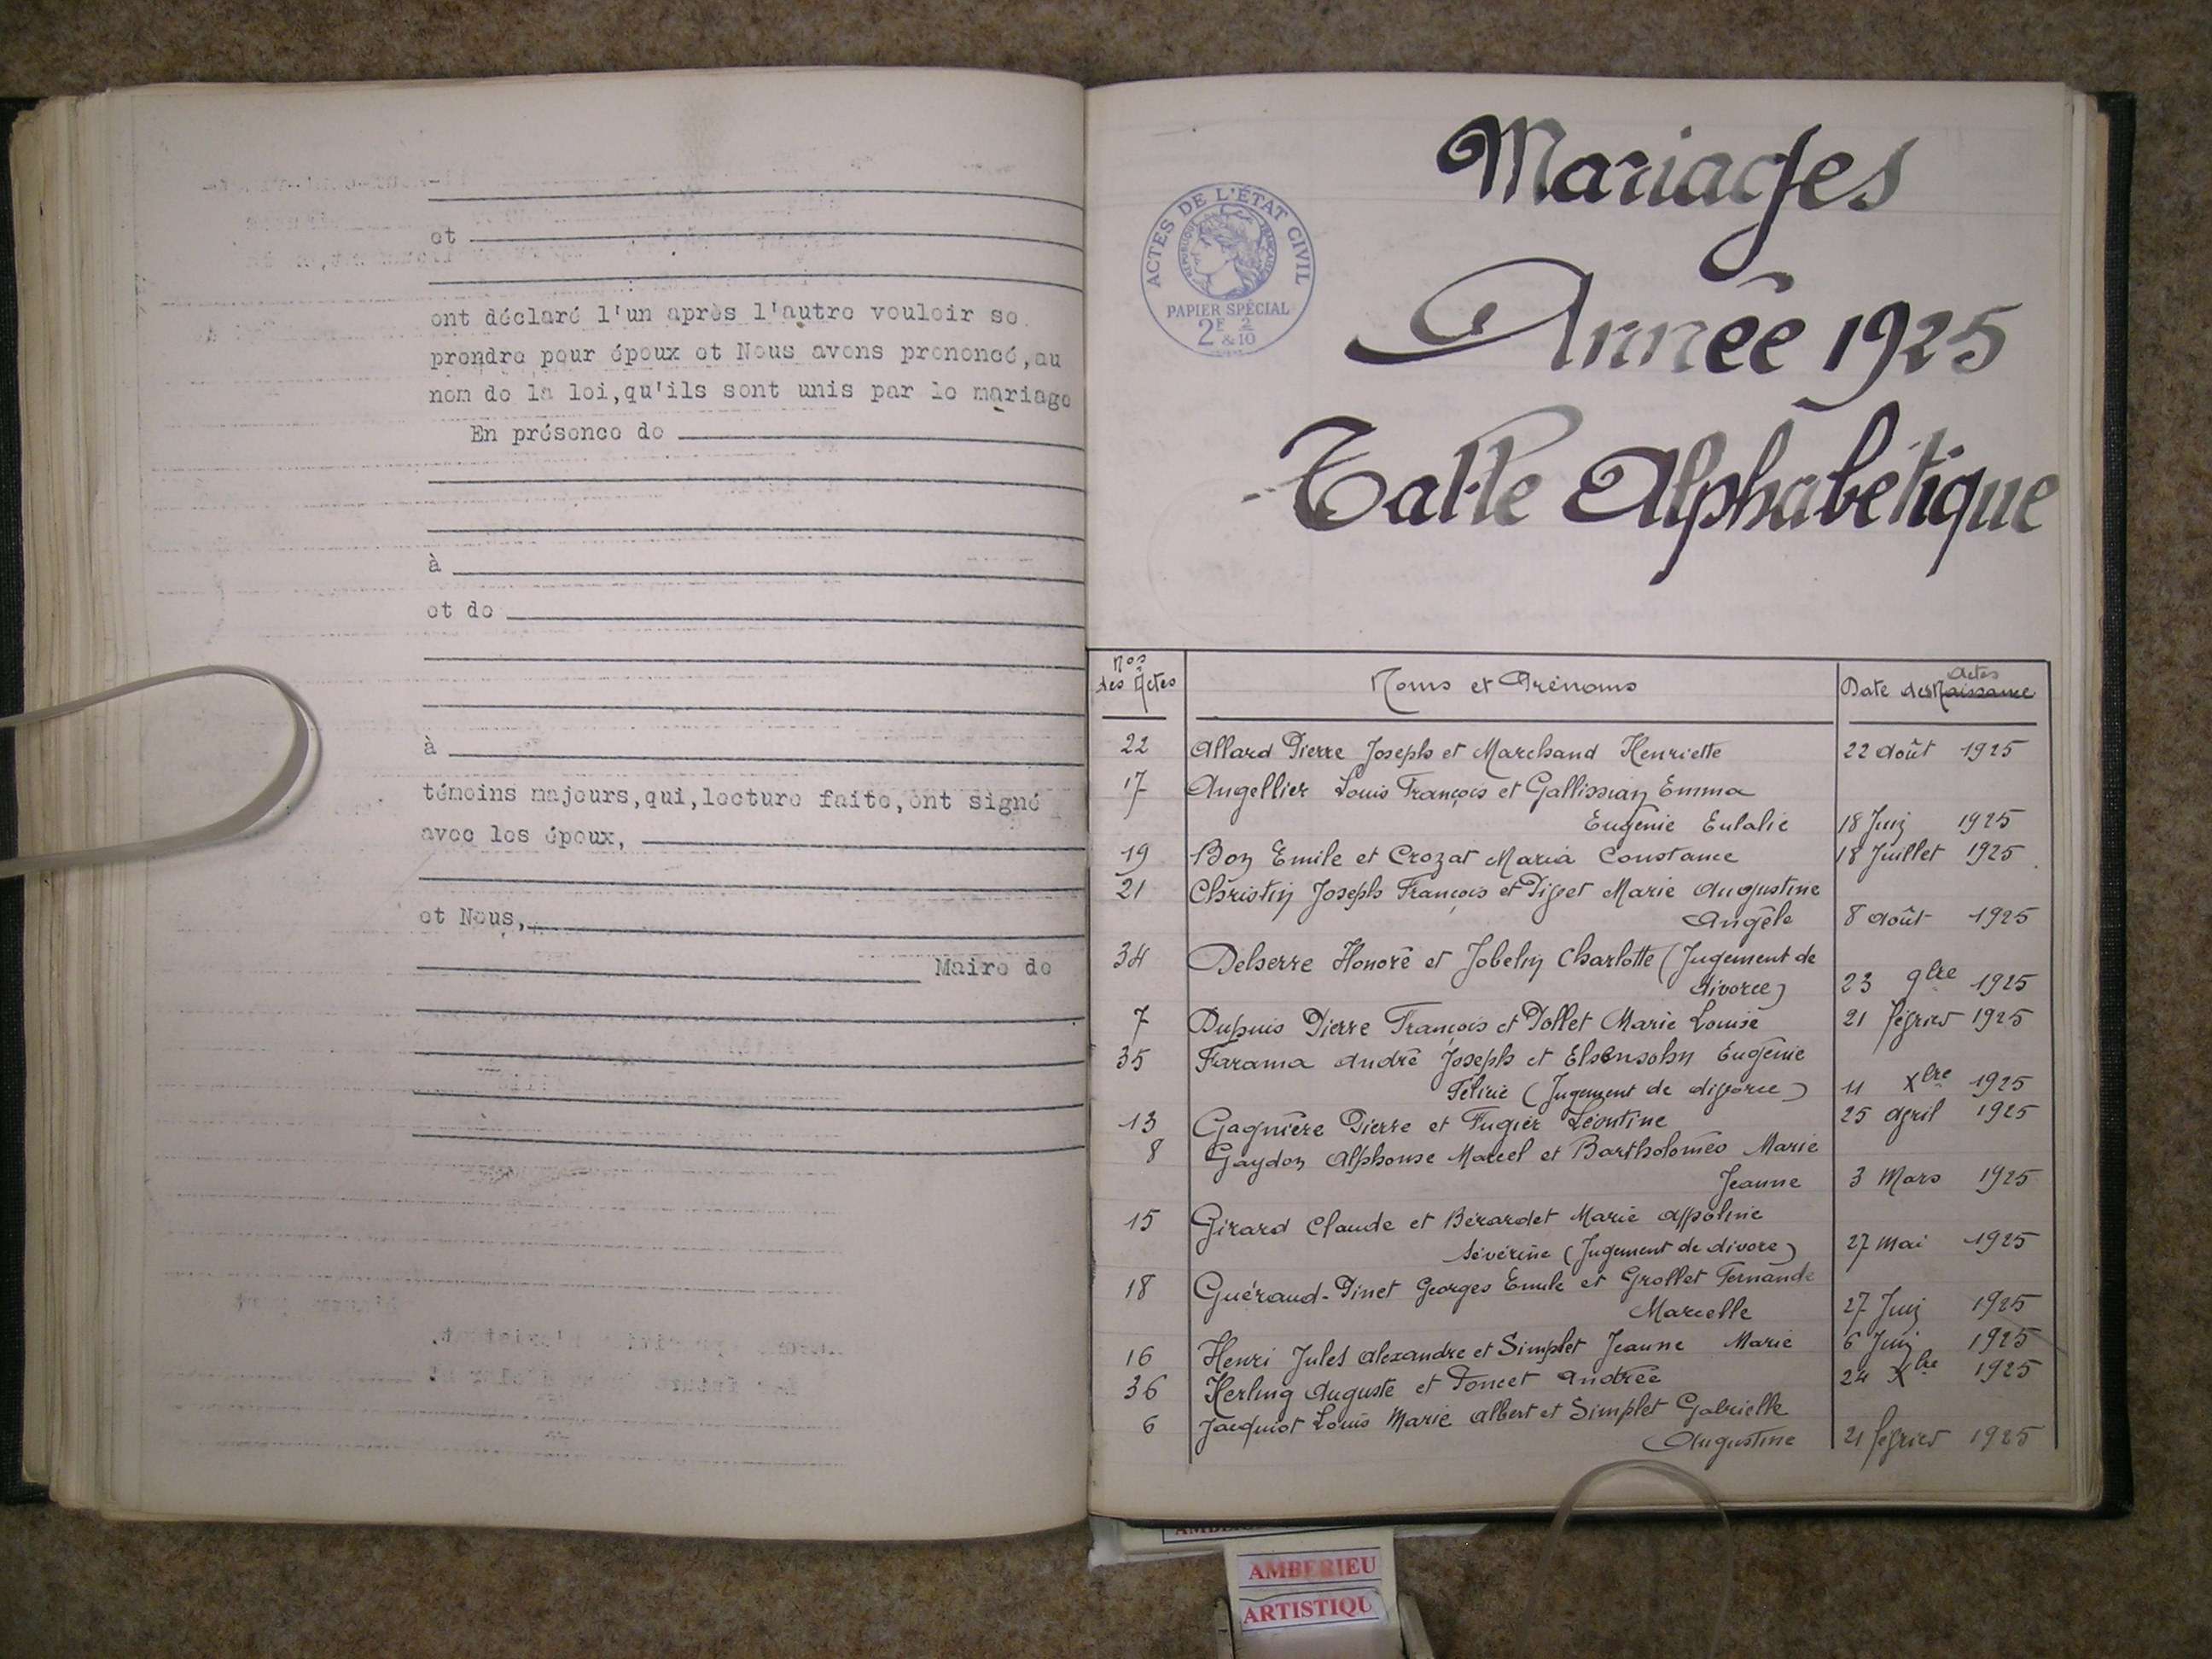 et
ont déclaré l'un après l'autre vouloir se
prendre pour époux et Nous avons prononcé, au
nom de la loi, qu'ils sont unis par le mariage
En présence de
à
et de
à
témoins majeurs, qui, lecture faite, ont signé
avec les époux,
et Nous,
Maire de
Mariages
ACTES DE L'ÉTAT CIVIL
RÉPUBLIQUE FRANÇAISE
PAPIER SPÉCIAL
2F & 2/10
Année 1925
Table Alphabétique
Nos des Actes
Noms et Prénoms
Date des Naissance Actes
22 Allard Pierre Joseph et Marchand Henriette 22 Août 1925
17 Angellier Louis François et Gallissian Emma
Eugénie Eulalie 18 Juin 1925
19 Bon Emile et Crozat Maria Constance 18 Juillet 1925
21 Christin Joseph François et Pivet Marie Augustine
Angèle 8 Août 1925
34 Delserre Honoré et Jobelin Charlotte (Jugement de
divorce) 23 9bre 1925
7 Dupuis Pierre François et Pollet Marie Louise 21 février 1925
35 Farama André Joseph et Elsensohn Eugénie
Félicie (Jugement de divorce) 11 Xbre 1925
13 Gagnière Pierre et Fugier Léontine 25 Avril 1925
8 Gaydon Alphonse Marcel et Bartholoméo Marie
Jeanne 3 Mars 1925
15 Girard Claude et Bérardet Marie Appolinie
Sévérine (Jugement de divore) 27 Mai 1925
18 Guéraud-Pinet Georges Emile et Grollet Fernande
Marcelle 27 Juin 1925
16 Henri Jules Alexandre et Simplet Jeanne Marie 6 Juin 1925
36 Herling Auguste et Poncet Andrée 24 Xbre 1925
6 Jacquiot Louis Marie Albert et Simplet Gabrielle
Augustine 21 février 1925
AMBERIEU
ARTISTIQU